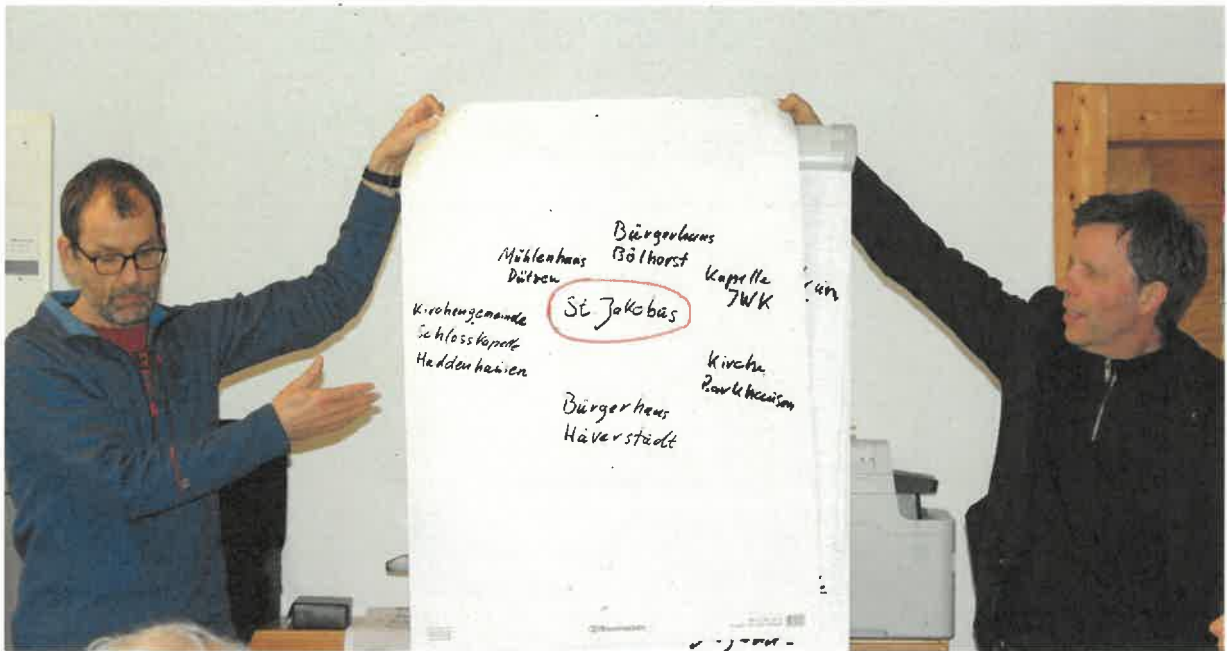 Bürgerhaus
Bölhorst
Mühlenhaus
Dützen
Kapelle
JWK
St. Jakobus
Kirchengemeinde
Schlosskapelle
Haddenhausen
Kirche
Barkhausen
Bürgerhaus
Häverstädt